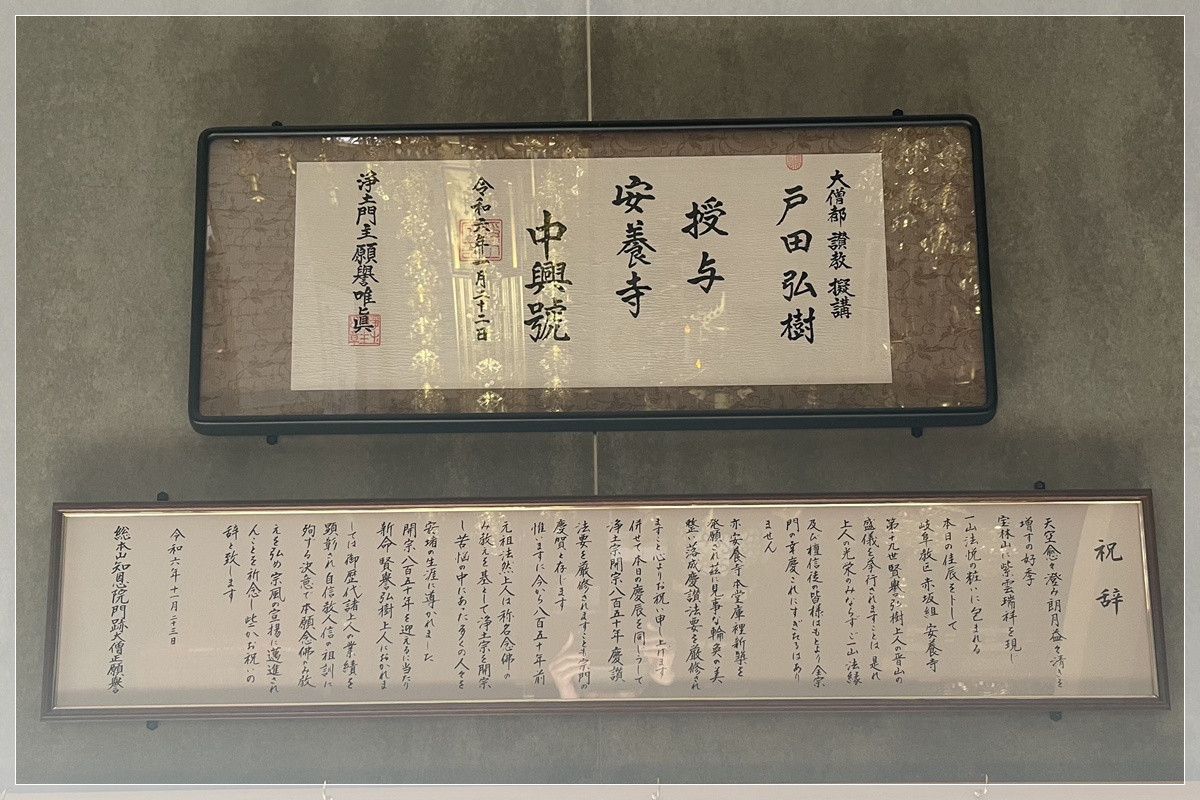 大僧都 讃教 擬講
戸田弘樹
授与
安養寺
中興號
令和六年一月二十二日
浄土門主願譽唯眞
祝辞
天空愈々澄み朗月益々清さを
増すの好季
宝林山に紫雲瑞祥を現し
一山法悦の粧いに包まれる
本日の佳辰をトして
岐阜教区 赤坂組 安養寺
第十九世賢譽弘樹上人の晋山の
盛儀を奉行されますことは 是れ
上人の光栄のみならず ご一山法縁
及び檀信徒の皆様はもとより全宗
門の幸慶これにすぎたるはあり
ません
亦安養寺本堂庫裡新築を
発願され茲に見事な輪奐の美
整い落成慶讃法要を厳修され
ますこと心よりお祝い申し上げます
併せて本日の慶辰を同じうして
浄土宗開宗八百五十年慶讃
法要を厳修されますことも宗門の
慶賀と存じます
惟いますに今から八百五十年前
元祖法然上人は称名念佛の
み教えを基として浄土宗を開宗
し苦悩の中にあった多くの人々を
安堵の生涯に導かれました
開宗八百五十年を迎えるに当たり
新命 賢譽弘樹上人におかれま
しては御歴代諸上人の業績を
顕彰され自信教人信の祖訓に
殉ずる決意で本願念佛のみ教
えを弘め宗風の宣揚に邁進され
んことを祈念し些かお祝いの
辞と致します
令和六年十一月二十三日
総本山知恩院門跡大僧正願譽